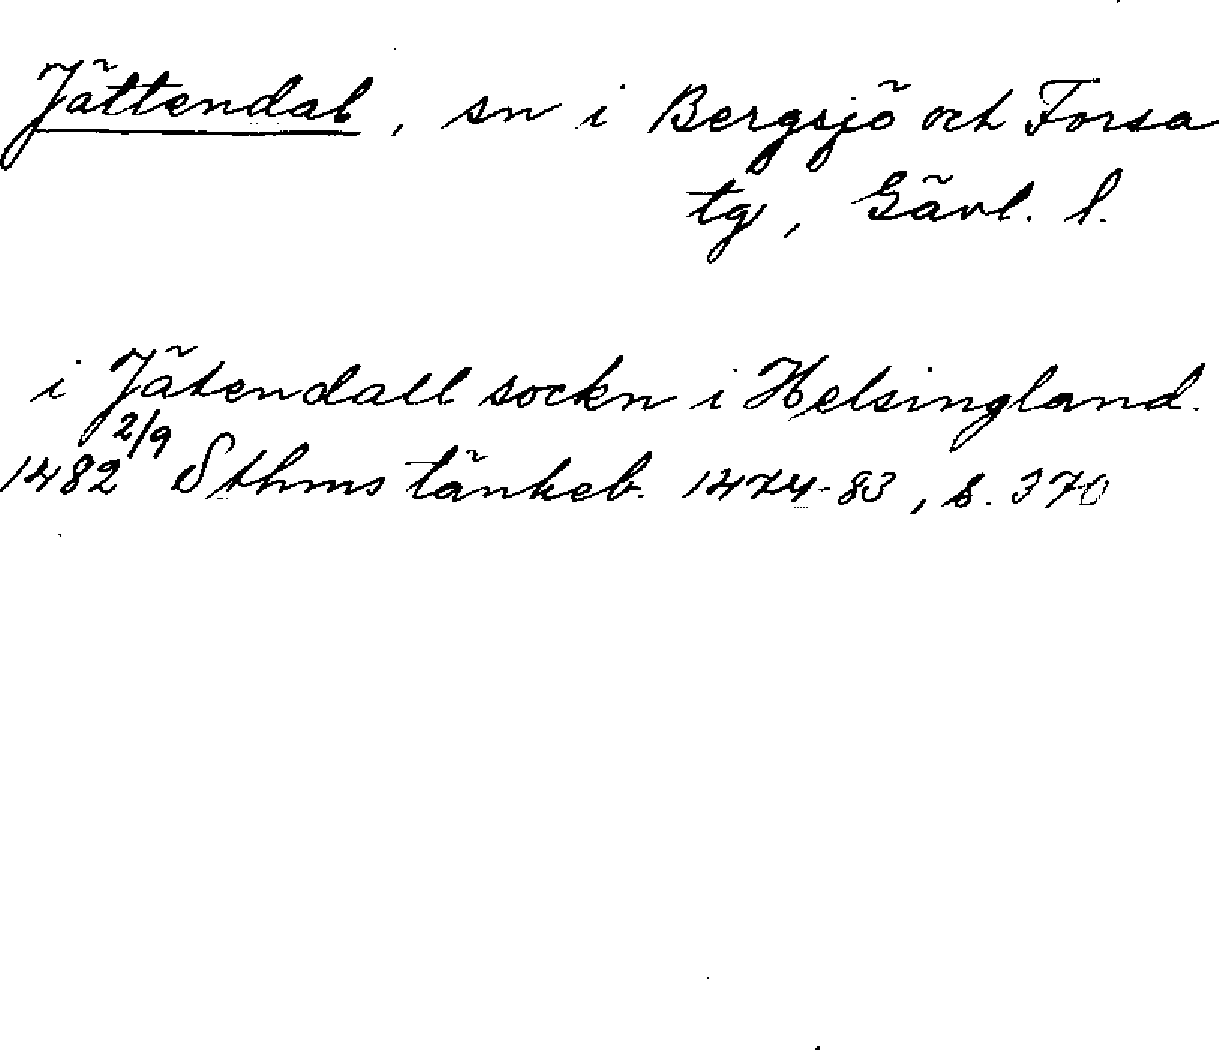 Jättendal, sn i Bergsjö och Forsa
tg, Gävl. l.
i Jätendall sockn i Helsingland.
1482 2/9 Sthms tänkeb. 1474-83, s. 370